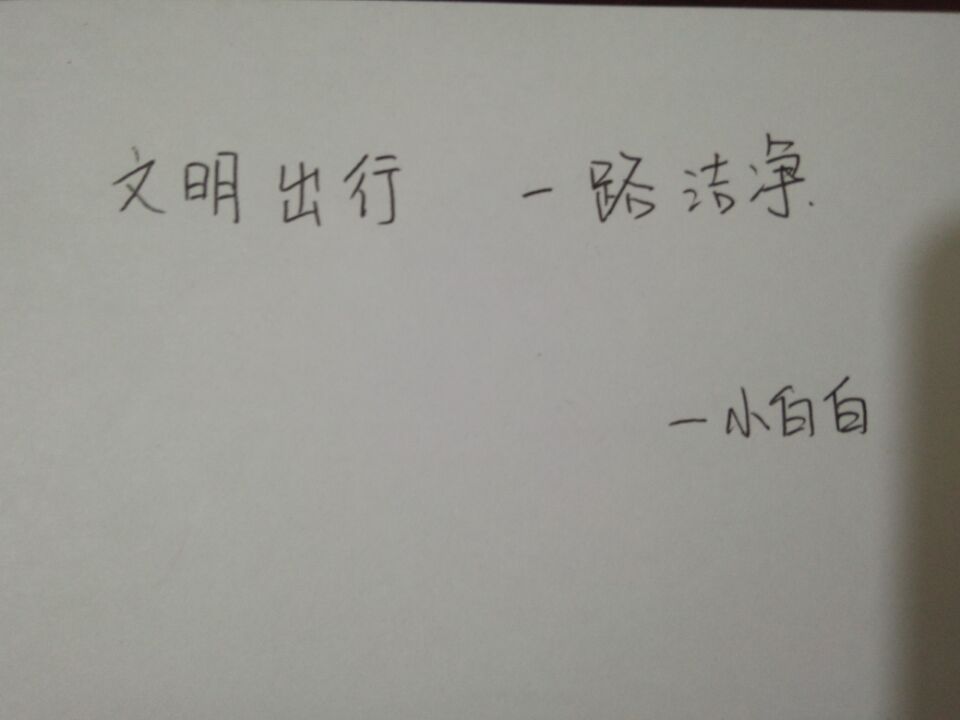 文明出行 一路洁净.
—小白白